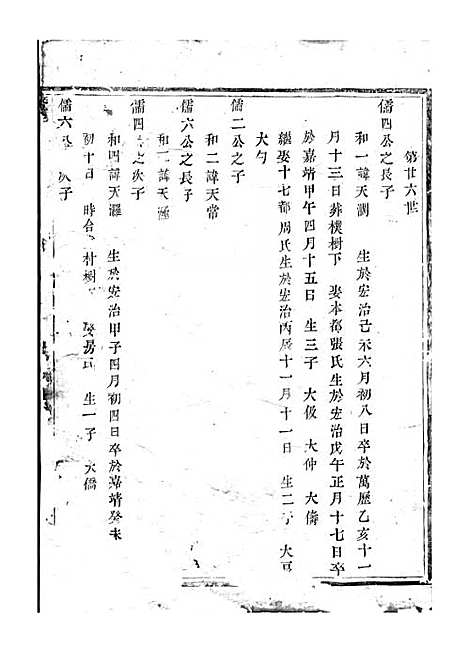 第廿六世
儒四公之長子
和一諱天潤 生於宏治己未六月初八日卒於萬歷乙亥十一
月十三日葬樸樹下 娶本都張氏生於宏治戊午正月十七日卒
於嘉靖甲午四月十五日 生三子 大伋 大仲 大儔
繼娶十七都周氏生於宏治丙辰十一月十一日 生二子 大可
大勻
儒二公之子
和二諱天常
儒六公之長子
和三諱天
儒四公之次子
和四諱天瀑 生於宏治甲子四月初四日卒於嘉靖癸未
初十日 時合 村樹 娶 氏 生一子 大僑
儒六公 次子